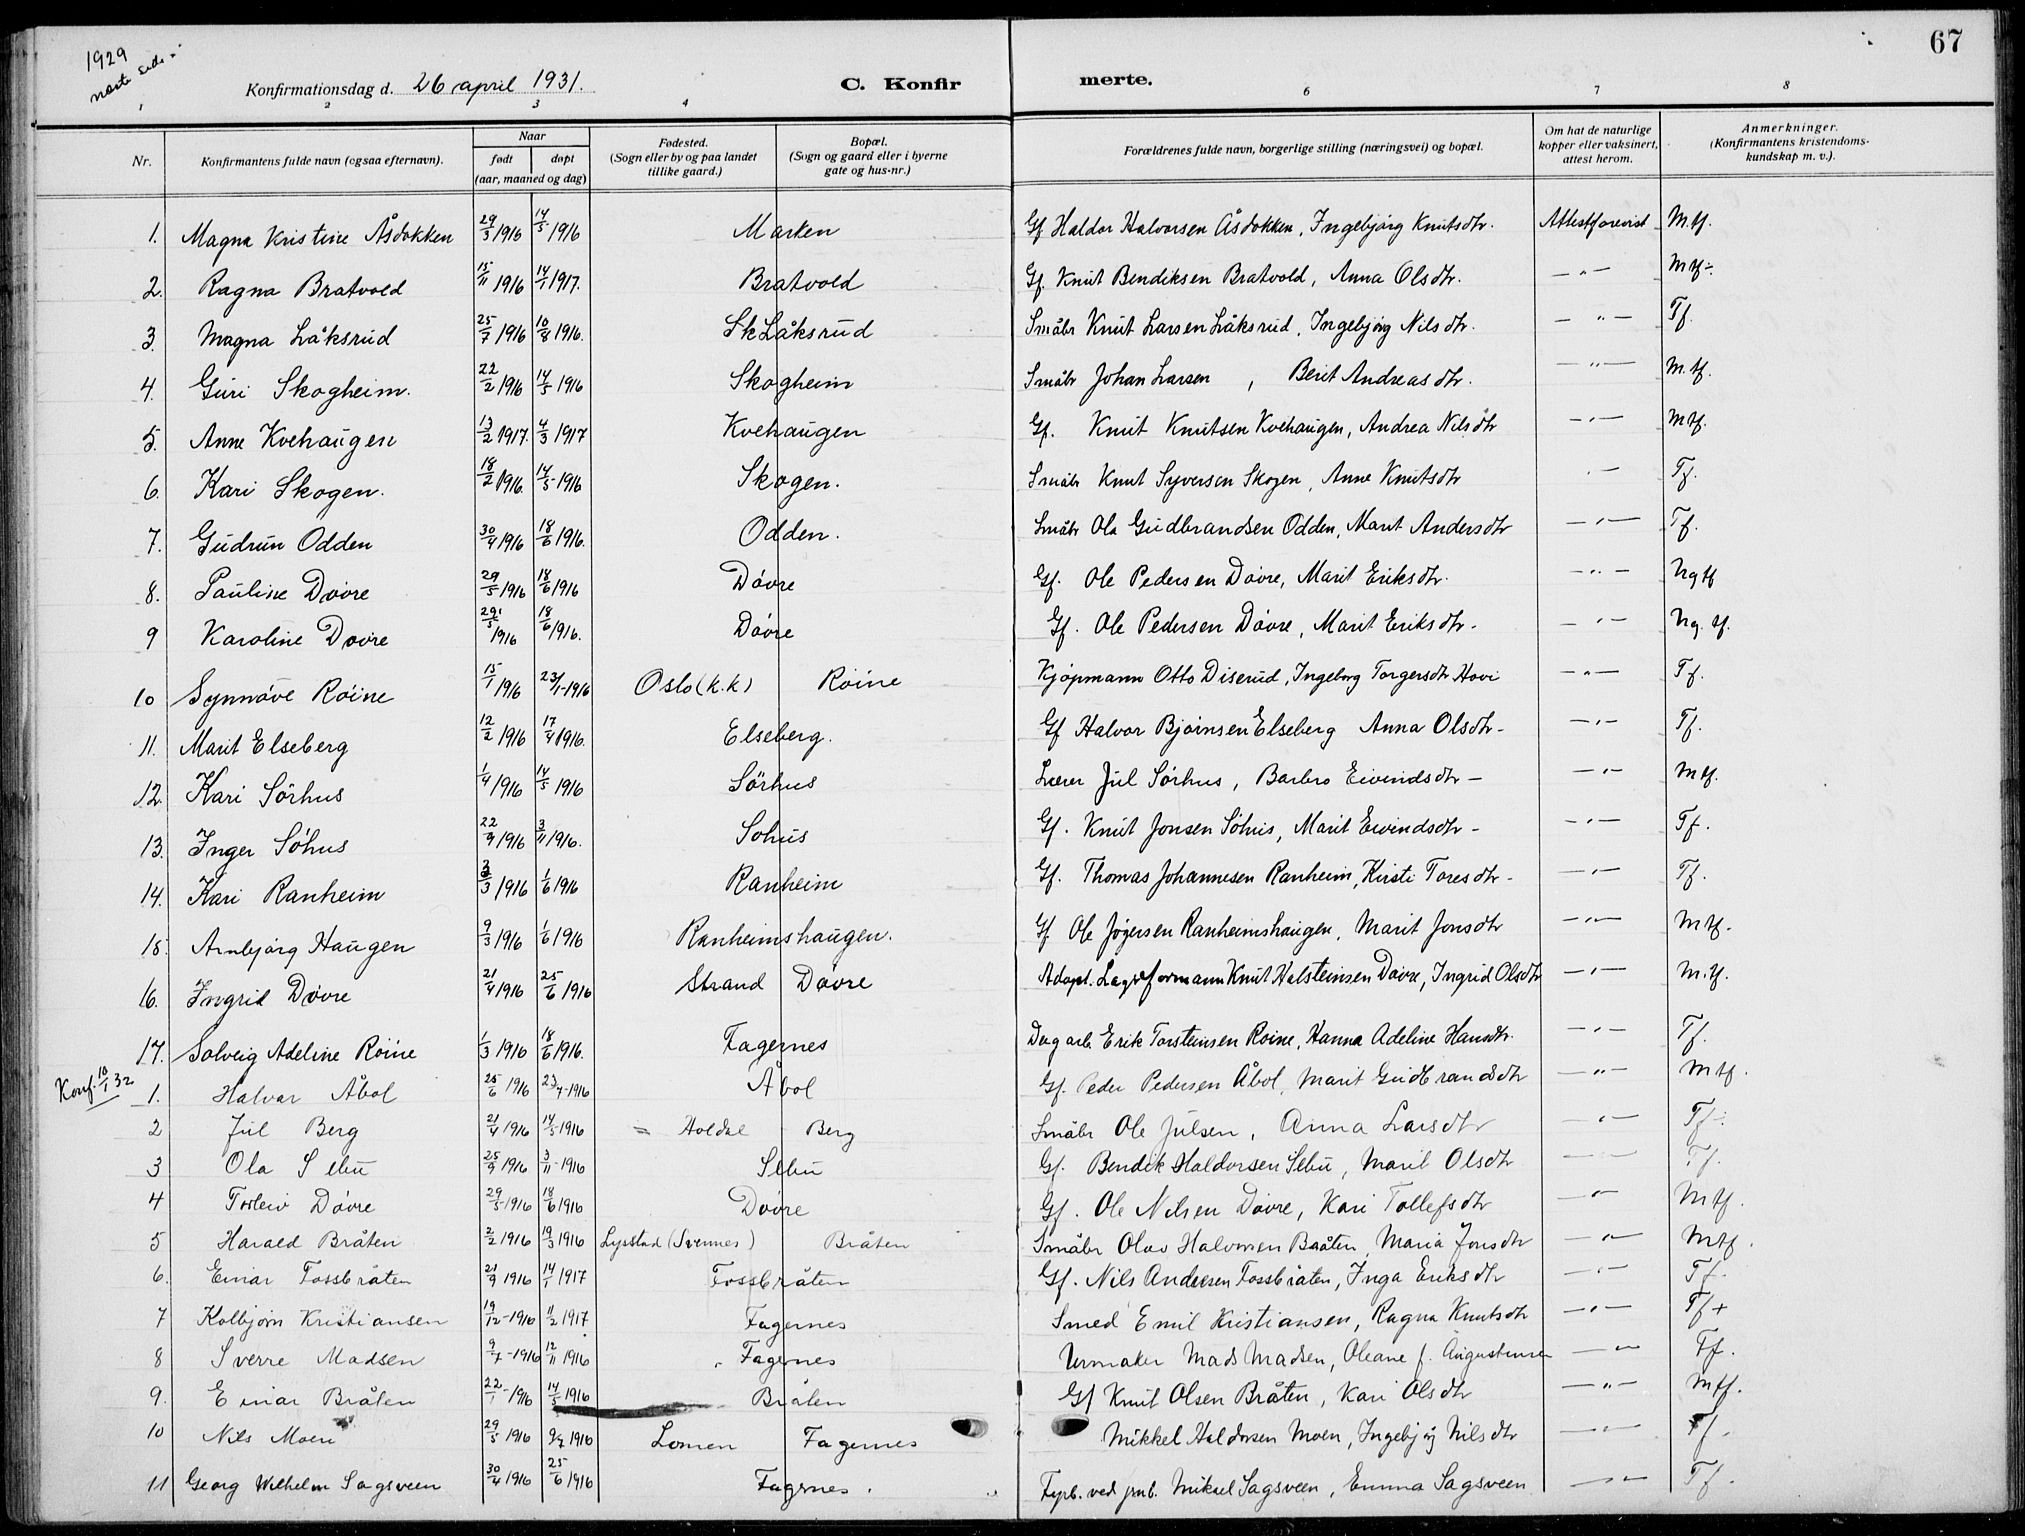 1929
næste side
67
Konfirmationsdag d. 26 april 1931.
C. Konfirmerte.
1 2 3 4 6 7 8
Nr.
Konfirmantens fulde navn (ogsaa efternavn).
Naar
født
døpt
(aar, maaned og dag)
Fødested.
(Sogn eller by og paa landet
tillike gaard.)
Bopæl.
(Sogn og gaard eller i byerne
gate og hus-nr.)
Forældrenes fulde navn, borgerlige stilling (næringsvei) og bopæl.
Om hat de naturlige
kopper eller vaksinert,
attest herom.
Anmerkninger.
(Konfirmantens kristendoms-
kundskap m. v.).
1. Magna Kristine Åsdokken 29/3 1916 14/5 1916 Marken Gf Haldor Halvorsen Åsdokken, Ingebjørg Knutsdtr. Attest forevist M.tf.
2. Ragna Bratvold 15/11 1916 14/1 1917. Bratvold Gf. Knut Bendiksen Bratvold, Anna Olsdtr. —"— Mtf÷.
3. Magna Låksrud 25/7 1916 10/8 1916. Sk Låksrud Småbr Knut Larsen Låksrud, Ingebjørg Nilsdtr. —"— Tf.
4. Guri Skogheim. 22/2 1916 14/5 1916 Skogheim Småbr Johan Larsen, Berit Andreasdtr. —"— M.tf.
5. Anne Kvehaugen 13/2 1917. 4/3 1917 Kvehaugen Gf. Knut Knutsen Kvehaugen, Andrea Nilsdtr —"— Mtf.
6. Kari Skogen. 18/2 1916. 14/5 1916 Skogen. Småbr Knut Syversen Skogen, Anne Knutsdtr "— Tf.
7. Gudrun Odden 30/4 1916 18/6 1916. Odden. Småbr Ola Gudbrandsen Odden, Marit Andersdtr —"— Tf.
8. Pauline Døvre 29/5 1916 18/6 1916 Døvre Gf. Ole Pedersen Døvre, Marit Eriksdtr. —"— Ngtf
9 Karoline Døvre 29/5 1916 18/6 1916. Døvre Gf. Ole Pedersen Døvre, Marit Eriksdtr. —"— Ng. tf.
10 Synnøve Røine 15/1 1916 23/1-1916 Oslo (k.k) Røine Kjøpmann Otto Diserud, Ingeborg Torgersdtr Hovi —"— Tf.
11. Marit Elseberg 12/2 1916 17/4 1916. Elseberg. Gf Halvor Bjørnsen Elseberg Anna Olsdtr- —"— Tf.
12. Kari Sørhus 1/4 1916 14/5 1916 Sørhus Lærer Jul Sørhus, Barbro Eivindsdtr — —"— Mtf.
13. Inger Søhus 22/9 1916 3/11 1916. Søhus Gf. Knut Jonsen Søhus, Marit Eivindsdtr - —"— Tf.
14. Kari Ranheim 3/3 1916 1/6 1916 Ranheim Gf. Thomas Johannesen Ranheim, Kirsti Toresdtr - —"— Tf.
15. Arnbjørg Haugen 9/3 1916 1/6 1916 Ranheimshaugen. Gf Ole Jøgersen Ranheimshaugen, Marit Jonsdtr —"— Mtf.
16. Ingrid Døvre 21/4 1916 25/6 1916 Strand Døvre Adopt. Lagerformann Knut Halsteinsen Døvre, Ingrid Olsdtr —"— M.tf.
17. Solveig Adeline Røine 1/3 1916 18/6 1916. Fagernes Dagarb. Erik Torsteinsen Røine, Hanna Adeline Hansdtr. —"— Tf.
Konf. 10/1 32
1. Halvar Åbol 25/6 1916 23/7-1916 Åbol Gf. Peder Pedersen Åbol, Marit Gudbrandsdtr —"— Mtf.
2 Jul Berg 21/4 1916 14/5-1916 = Holdal Berg Småbr Ole Julsen, Anna Larsdtr "— Tf÷
3 Ola Sebu 25/9 1916 3/11-1916 Sebu Gf. Bendik Haldorsen Sebu, Marit Olsdtr —"— Tf.
4 Torleiv Døvre 29/5-1916 18/6 1916 Døvre Gf. Ole Nilsen Døvre, Kari Tollefsdtr —"— Mtf.
5 Harald Bråten 2/2 1916 19/3 1916 Lysstad (Svennes) Bråten Småbr Olav Halvorsen Bråten, Maria Jonsdtr —"— Mtf.
6. Einar Fossbråten 21/9 1916 14/1 1917 Fossbråten Gf. Nils Andersen Fossbråten, Inga Eriksdtr —"— Tf.
7 Kolbjørn Kristiansen 19/12-1916 11/2 1917 Fagernes Smed Emil Kristiansen, Ragna Knutsdtr —"— Tf+
8 Sverre Madsen 9/7-1916 12/11 1916 Fagernes Urmaker Mads Madsen, Oleane f. Augustinsen —"— Tf.
9. Einar Bråten 22/1-1916 14/5 1916 Bråten Gf Knut Olsen Bråten, Kari Olsdtr —"— Mtf.
10 Nils Moen 29/5 1916 9/7 1916 Lomen Fagernes Mikkel Haldorsen Moen, Ingebjørg Nilsdtr —"— Tf.
11 Georg Wilhelm Sagsveen 30/4 1916 25/6 1916 Fagernes. ved jnb. Miksel Sagsveen, Emma Sagsveen —"— Tf.